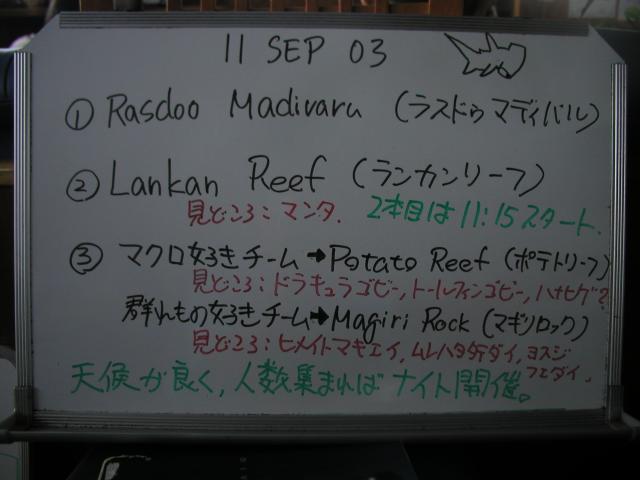 11 SEP 03
① Rasdoo Madivaru (ラスドゥマディバル)
② Lankan Reef (ランカンリーフ)
見どころ: マンタ. 2本目は11:15スタート.
③ マクロ好きチーム→Potato Reef (ポテトリーフ)
見どころ: ドラキュラゴビー, トールフィンゴビー, ハナヒゲ?
群れもの好きチーム→Magiri Rock (マギリロック)
見どころ: ヒメイトマキエイ, ムレハタタテダイ, ヨスジ
フエダイ.
天候が良く, 人数集まればナイト開催。